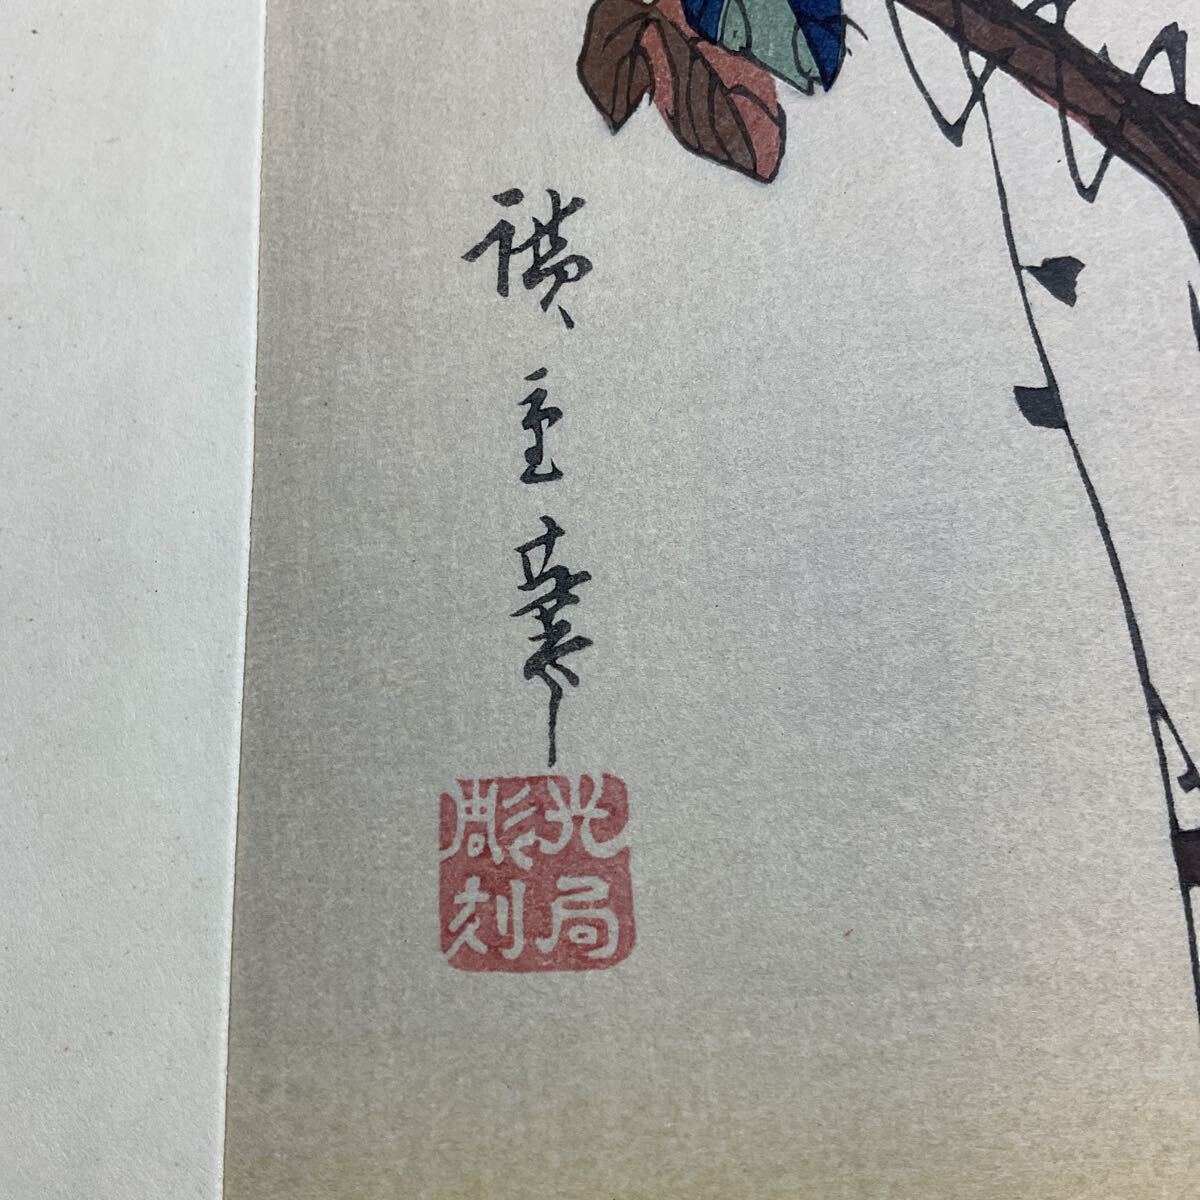 廣重筆
光局
彫刻